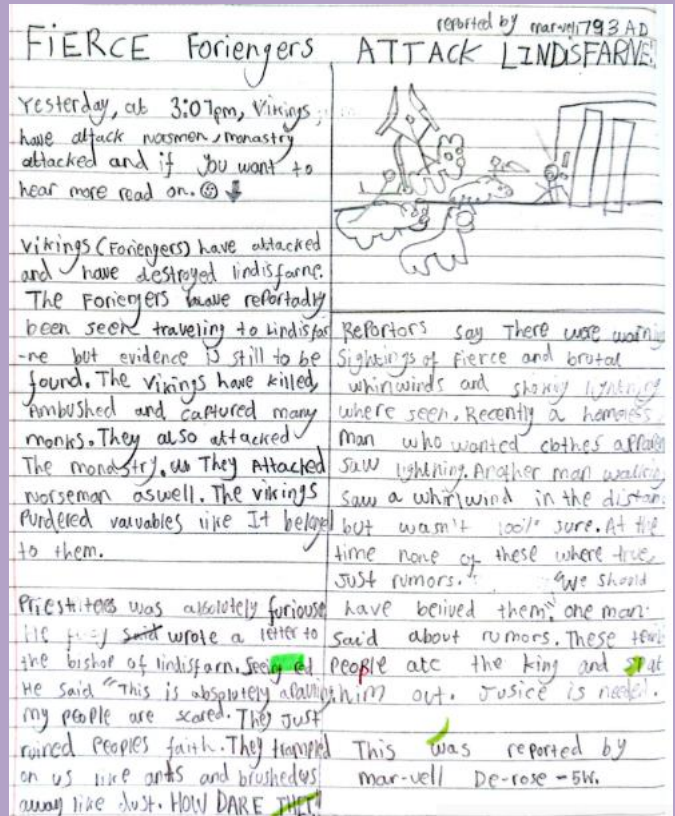 reported by mar-vell 793 AD
FiERCE Foriengers ATTACK LINDISFARNE!
Yesterday, at 3:07pm, Vikings,
have attack norsmen, monastry
attacked and if you want to
hear more read on.
Vikings (Foriengers) have attacked
and have destroyed lindisfarne.
The Foriengers have reportadly
been seen traveling to Lindisfar
-ne but evidence is still to be
found. The Vikings have killed,
Ambushed and captured many
monks. They also attacked
The monastry. as They Attacked
norseman aswell. The vikings
Pundered valuables like It belonged
to them.
Priesthiteas was absolutely furiouse
He wrote a letter to
the bishop of lindisfarn. Seeing
He said "This is absolutely apalling
my people are scared. They Just
ruined peoples faith. They trampled
on us like ants and brushed us
away like dust. HOW DARE THEY"
Reportors say There were
Sightings of Fierce and brutal
whirlwinds and lightning
where seen. Recently a homeless
man who wanted clothes
saw lightning. Another man walking
saw a whirlwind in the distan
but wasn't 100% sure. At the
time none of these where true,
Just rumors. "We should
have belived them", one man
said about rumors. These
people ate the king and spat
him out. Jusice is needed.
This was reported by
mar-vell De-rose - 5W.